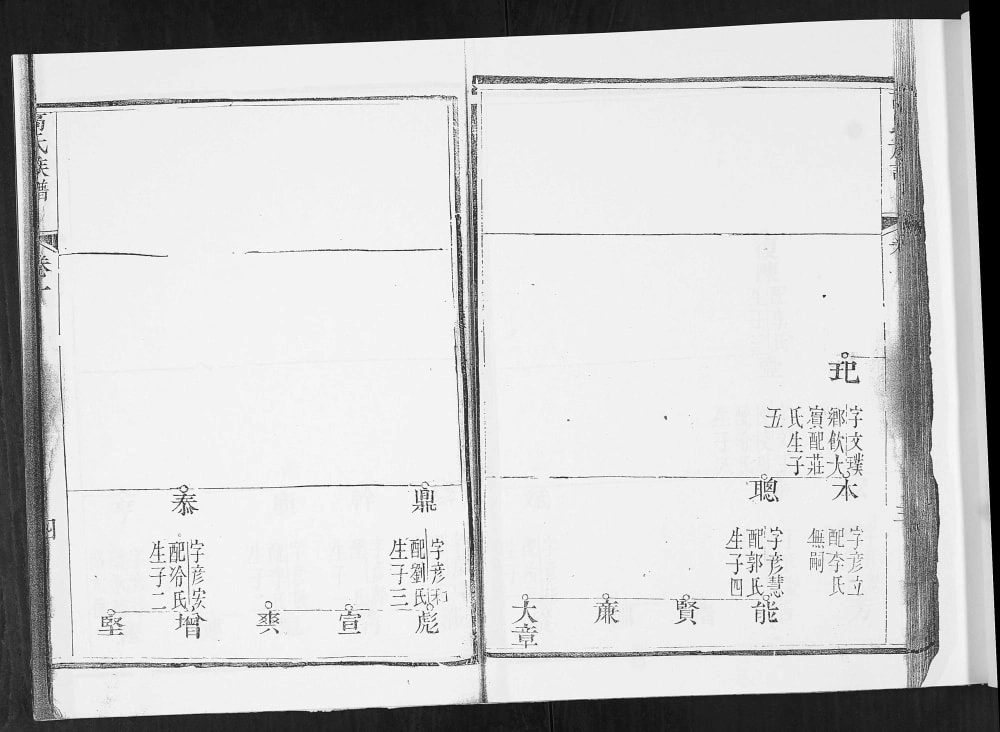 玘
字文璞
鄉飲大
賓配莊
氏生子
五
本
字彦立
配李氏
無嗣
聰
字彦慧
配郭氏
生子四
能
賢
亷
大章
三
鼎
字彦和
配劉氏
生子三
彪
宣
爽
泰
字彦安
配冷氏
生子二
增
堅
氏族譜
卷一
四